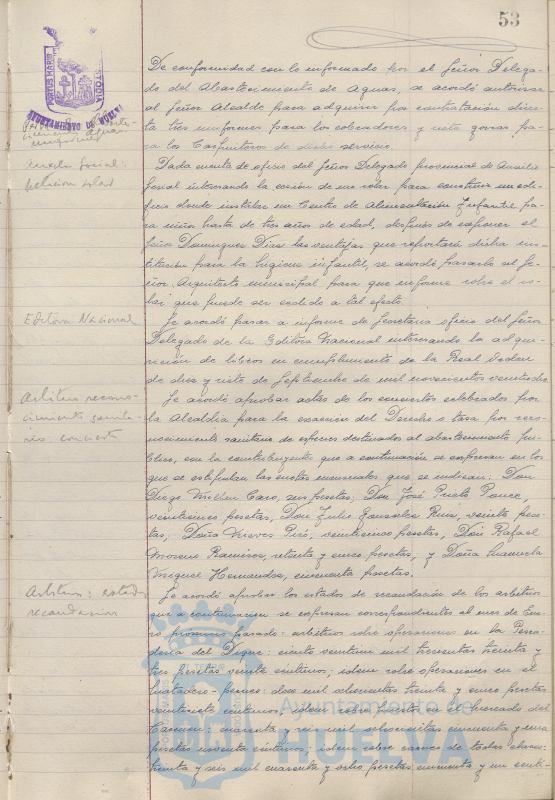 53
PORTUS MARIS
AYUNTAMIENTO DE HUELVA
De conformidad con lo informado por el Señor Delega-
do del Abastecimiento de Aguas, se acordó autorizar
al Señor Alcalde para adquirir por contratación direc-
ta tres uniformes para los cobradores y siete gorras pa-
ra los Capfontros de dicho servicio.
Auxilio Social:
petición solar
Dada cuenta de oficio del Señor Delegado provincial de Auxilio
Social interesando la cesión de un solar para construir un edi-
ficio donde instalar un Centro de Alimentación Infantil pa-
ra niños hasta de tres años de edad, después de exponer el
Señor Dominguez Diaz las ventajas que reportaría dicha ins-
titución para la higiene infantil, se acordó pasarlo al Se-
ñor Arquitecto municipal para que informe sobre el so-
lar que puede ser cedido a tal efecto.
Editora Nacional
Se acordó pasar a informe de Secretaría oficio del Señor
Delegado de la Editora Nacional interesando la adqui-
sición de libros en cumplimiento de la Real Orden
de diez y siete de Septiembre de mil novecientos veintidos.
Arbitrio recono-
cimiento sanita-
rio concierto
Se acordó aprobar actas de los conciertos celebrados por
la Alcaldía para la exacción del Derecho o tasa por reco-
nocimiento sanitario de especies destinadas al abastecimiento Pú-
blico, con los contribuyentes que a continuación se expresan en los
que se estipulan las cuotas mensuales que se indican: Don
Diego Millan Caro, seis pesetas; Don José Prieto Ponce,
veinticinco pesetas, Don Julio Gonzalez Ruiz, veinte pese-
tas; Doña Nieves Piró, veinticinco pesetas, Don Rafael
Moreno Ramirez, setenta y cinco pesetas, y Doña Manuela
Miguel Hernandez, cincuenta pesetas.
Arbitrios: estados
recaudacion
Se acordó aprobar los estados de recaudación de los arbitrios
que a continuación se expresan correspondientes al mes de Ene-
ro proximo pasado: arbitrios sobre operaciones en la Pesca-
dería del Dique: ciento veintiun mil trescientas treinta y
tres pesetas veinte centimos; idem sobre operaciones en el
Matadero-peces: doce mil doscientas treinta y cinco pesetas
veintisiete centimos, idem sobre puestos en el Mercado del
Carmen: cuarenta y seis mil ochocientas cincuenta y una
pesetas noventa centimos; idem sobre carnes de todas clases:
treinta y seis mil cuarenta y ocho pesetas cincuenta y un centi-
Ayuntamiento de
HUELVA